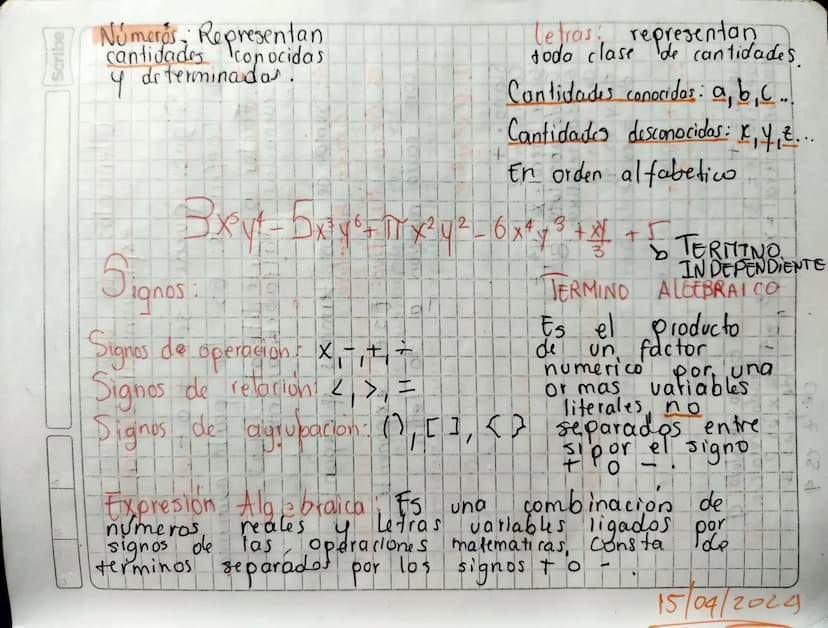 Scribe
Números: Representan
cantidades conocidas
y determinadas.
Letras: representan
toda clase de cantidades.
Cantidades conocidas: a, b, c...
Cantidades desconocidas: x, y, z...
En orden alfabetico
3x⁵y⁴ - 5x³y⁶ + πx²y² - 6x⁴y³ + xy/3 + 5
↳ TERMINO
INDEPENDIENTE
Signos:
Signos de operación: x, -, +, ÷
Signos de relación: <, >, =
Signos de agrupación: (), [], {}
TERMINO ALGEBRAICO
Es el producto
de un factor
numerico por una
or mas variables
literales no
separados entre
si por el signo
+ o -.
Expresión Algebraica: Es una combinación de
números reales y letras variables ligados por
signos de las operaciones matematicas, consta de
terminos separados por los signos + o -.
15/04/2024